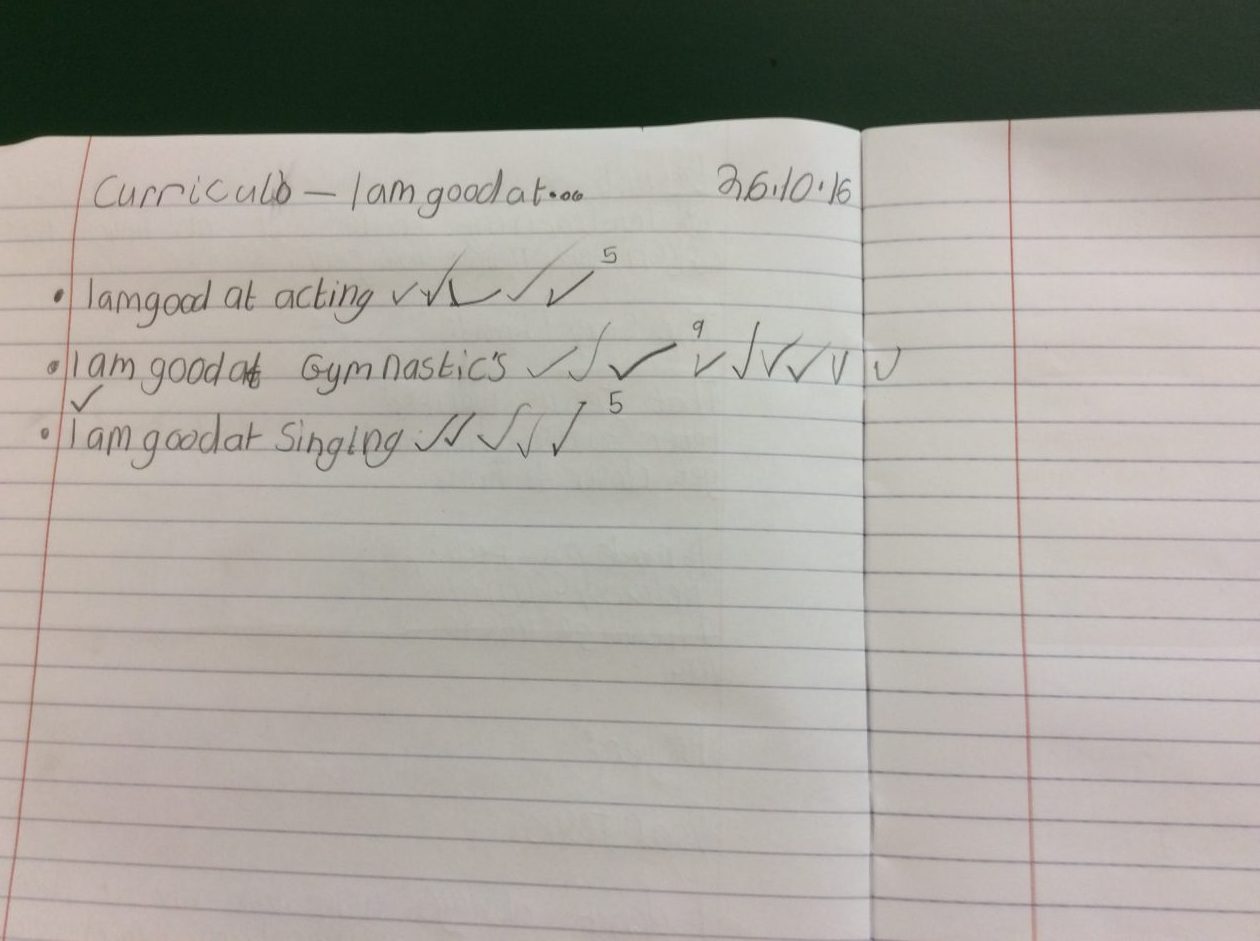 Curriculo - I am good at... 26.10.16
• I am good at acting ✓✓✓✓✓ 5
• I am good at Gymnastic's ✓✓✓✓✓✓✓✓✓ 9
✓
• I am good at Singing ✓✓✓✓✓ 5